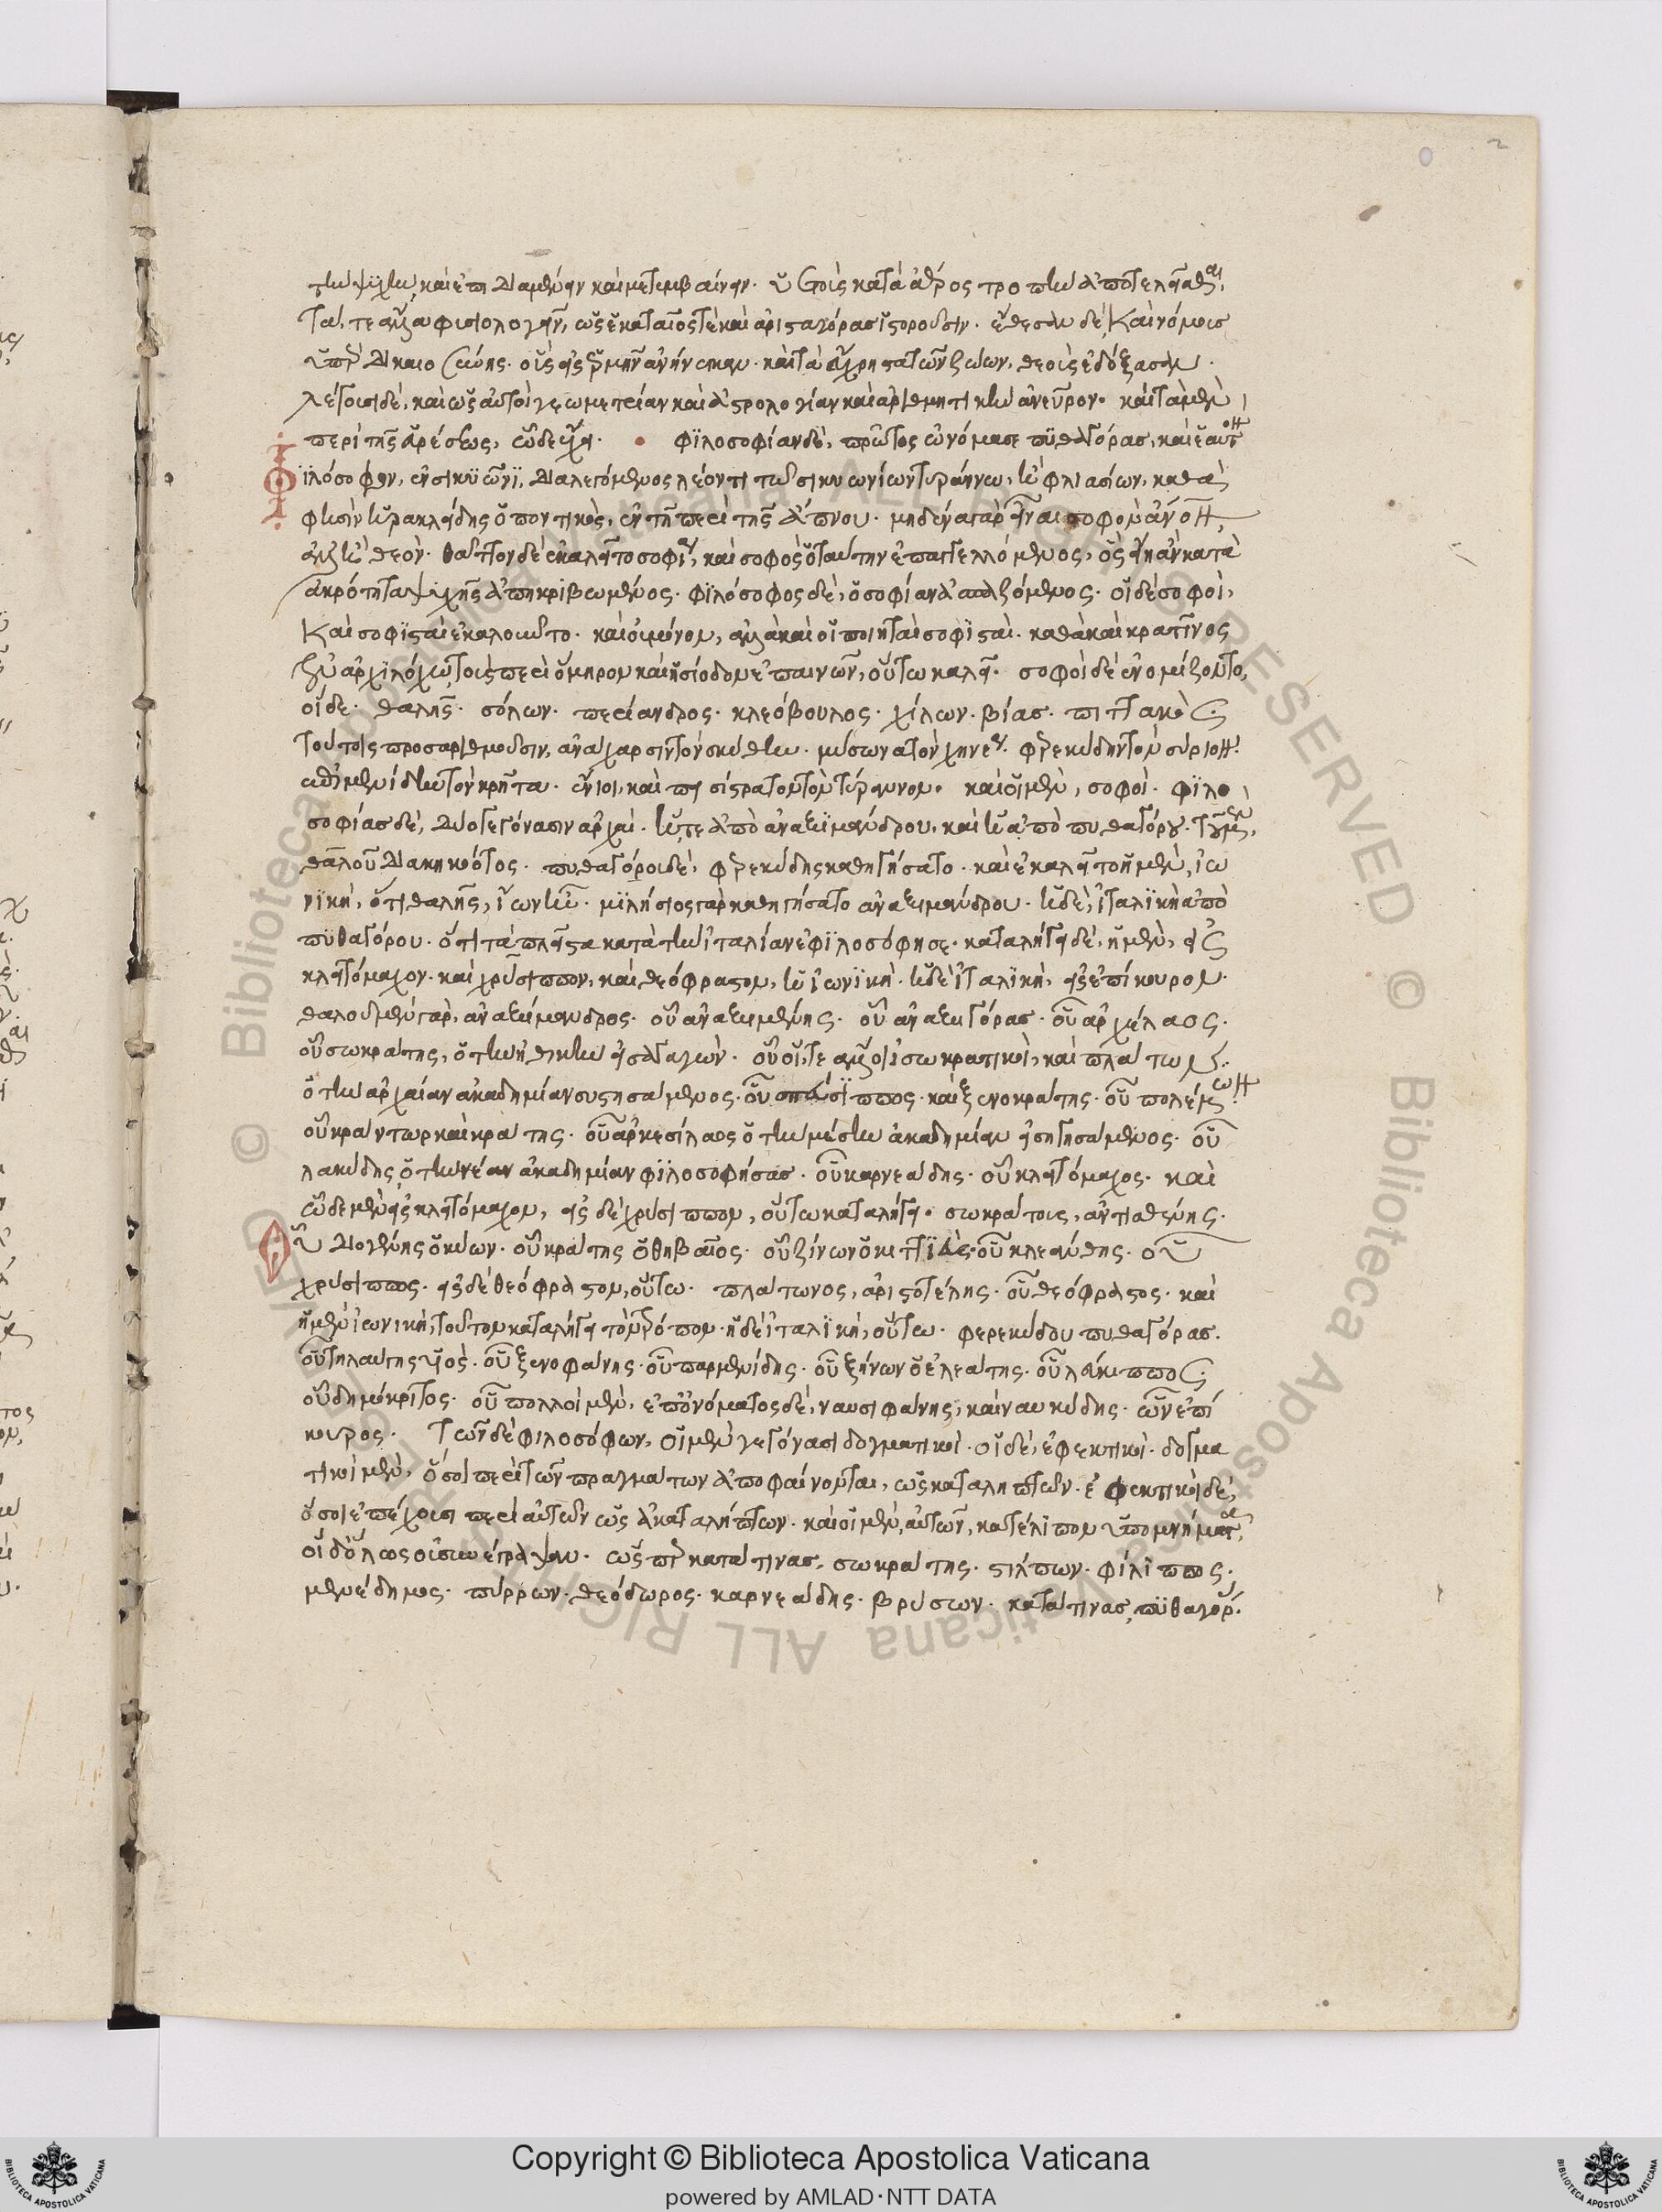 τὴν ψυχὴν, καὶ ἐπιδιαμένειν καὶ μετεμβαίνειν. ὑετοὺς κατὰ ἀέρος τροπὴν ἀποτελεῖσθαι,
τά, τε ἄλλα φυσιολογεῖν, ὡς ἑκαταῖος τὲ καὶ ἀρισταγόρας ἱστοροῦσιν. ἔθεσαν δὲ, καὶ νόμους
ὑπὲρ δικαιοσύνης. οὓς εἰς ἑρμῆν ἀνήνεγκαν. καὶ τὰ εὔχρηστα τῶν ζώων, θεοὺς ἐδόξασαν.
λέγουσι δὲ, καὶ ὡς αὐτοὶ γεωμετρίαν καὶ ἀστρολογίαν καὶ ἀριθμητικὴν ἀνεῦρον. καὶ τὰ μὲν
περὶ τῆς εὑρέσεως, ὧδε ἔχει. φϊλοσοφίαν δὲ, πρῶτος ὠνόμασε πϋθαγόρας, καὶ ἑαυτὸν
Φϊλόσοφον, ἐν σικϋῶνϊ, διαλεγόμενος λέοντι τῶ σικυωνίων τυράννω, ἢ φλιασίων, καθά
φησὶν ἡρακλείδης ὁ ποντικὸς, ἐν τῆ περὶ τῆς ἄπνου. μηδένα γὰρ εἶναι σοφὸν ἄνον,
ἀλλ' ἢ θεόν. θᾶττον δὲ ἐκαλεῖτο σοφία, καὶ σοφὸς ὁ ταύτην ἐπαγγελλόμενος, ὃς εἴη ἂν κατὰ
ἀκρότητα ψυχῆς ἀπηκριβωμένος. φϊλόσοφος δὲ, ὁ σοφίαν ἀσπαζόμενος. οἱ δὲ σοφοὶ,
καὶ σοφϊσταὶ ἐκαλοῦντο. καὶ οὐ μόνον, ἀλλὰ καὶ οἱ ποιηταὶ σοφϊσταὶ. καθὰ καὶ κρατῖνος
ἐν ἀρχϊλόχω, τοὺς περὶ ὅμηρον καὶ ἡσίοδον ἐπαινῶν, οὕτω καλεῖ. σοφοὶ δὲ ἐνομίζοντο,
οἵδε. θαλῆς. σόλων. περίανδρος. κλεόβουλος. χίλων. βίας. πιττακὸς
τούτοις προσαριθμοῦσιν, ἀνάχαρσιν τὸν σκύθην. μύσωνα τὸν χηνέα. φερεκύδην τὸν σύριον.
ἐπιμενίδην τὸν κρῆτα. ἔνιοι, καὶ πεισίστρατον τὸν τύραννον. καὶ οἱ μὲν, σοφοὶ. φϊλο
σοφίας δὲ, δύο γεγόνασιν ἀρχαὶ. ἥ, τε ἀπὸ ἀναξιμάνδρου, καὶ ἡ ἀπὸ πυθαγόρου. τοῦ μὲν,
θαλοῦ διακηκοότος. πυθαγόρου δὲ, φερεκύδης καθηγήσατο. καὶ ἐκαλεῖτο ἡ μὲν, ἰω
νϊκὴ, ὅτι θαλῆς, ἴων ὢν. μϊλήσιος γὰρ καθηγήσατο ἀναξιμάνδρου. ἡ δὲ, ἰταλϊκὴ ἀπὸ
πϋθαγόρου. ὅτι τὰ πλεῖστα κατὰ τὴν ἰταλίαν ἐφϊλοσόφησε. καταλήγει δὲ, ἡ μὲν, εἰς
κλειτόμαχον. καὶ χρύσιππον, καὶ θεόφραστον, ἡ ἰωνϊκὴ. ἡ δὲ ἰταλϊκὴ, εἰς ἐπίκουρον.
θαλοῦ μὲν γὰρ, ἀναξίμανδρος. οὗ ἀναξιμένης. οὗ ἀναξαγόρας. οὗ ἀρχέλαος.
οὗ σωκράτης, ὁ τὴν ἠθικὴν εἰσαγαγών. οὗ οἵ, τε ἄλλοι σωκρατικοὶ, καὶ πλάτων.
ὁ τὴν ἀρχαίαν ἀκαδημίαν συστησάμενος. οὗ σπεύσιππος. καὶ ξενοκράτης. οὗ πολέμων.
οὗ κράντωρ καὶ κράτης. οὗ ἀρκεσίλαος ὁ τὴν μέσην ἀκαδημίαν εἰσηγησάμενος. οὗ
λακύδης ὁ τὴν νέαν ἀκαδημίαν φϊλοσοφήσας. οὗ καρνεάδης. οὗ κλειτόμαχος. καὶ
ὧδε μὲν εἰς κλειτόμαχον, εἰς δὲ χρύσιππον, οὕτω καταλήγει. σωκράτους, ἀντισθένης.
οὗ διογένης ὁ κύων. οὗ κράτης ὁ θηβαῖος. οὗ ζήνων ὁ κιττϊεὺς. οὗ κλεάνθης. οὗ
χρύσιππος. εἰς δὲ θεόφραστον, οὕτω. πλάτωνος, ἀριστοτέλης. οὗ θεόφραστος. καὶ
ἡ μὲν ἰωνικὴ, τοῦτον καταλήγει τὸν τρόπον. ἡ δὲ ἰταλϊκὴ, οὕτω. φερεκύδου πυθαγόρας.
οὗ τηλαύγης υἱὸς. οὗ ξενοφάνης. οὗ παρμενίδης. οὗ ζήνων ὁ ἐλεάτης. οὗ λεύκιππος
οὗ δημόκριτος. οὗ πολλοὶ μὲν, ἐπ' ὀνόματος δὲ, ναυσιφάνης, καὶ ναυκύδης. ὧν ἐπί
κουρος. Τῶν δὲ φιλοσόφων, οἱ μὲν γεγόνασι δογματικοὶ. οἱ δὲ, ἐφεκτικοὶ. δογμα
τικοὶ μὲν, ὅσοι περὶ τῶν πραγμάτων ἀποφαίνονται, ὡς καταληπτῶν. ἐφεκτικοὶ δὲ,
ὅσοι ἐπέχουσι περὶ αὐτῶν ὡς ἀκαταλήπτων. καὶ οἱ μὲν, αὐτῶν, κατέλϊπον ὑπομνήματα,
οἱ δ' ὅλως οὐ συνέγραψαν. ὥσπερ κατά τινας, σωκράτης. στίλπων. φίλϊππος.
μενέδημος. πύρρων. θεόδωρος. καρνεάδης. βρύσων. κατά τινας, πϋθαγόρας.
Copyright © Biblioteca Apostolica Vaticana
powered by AMLAD·NTT DATA